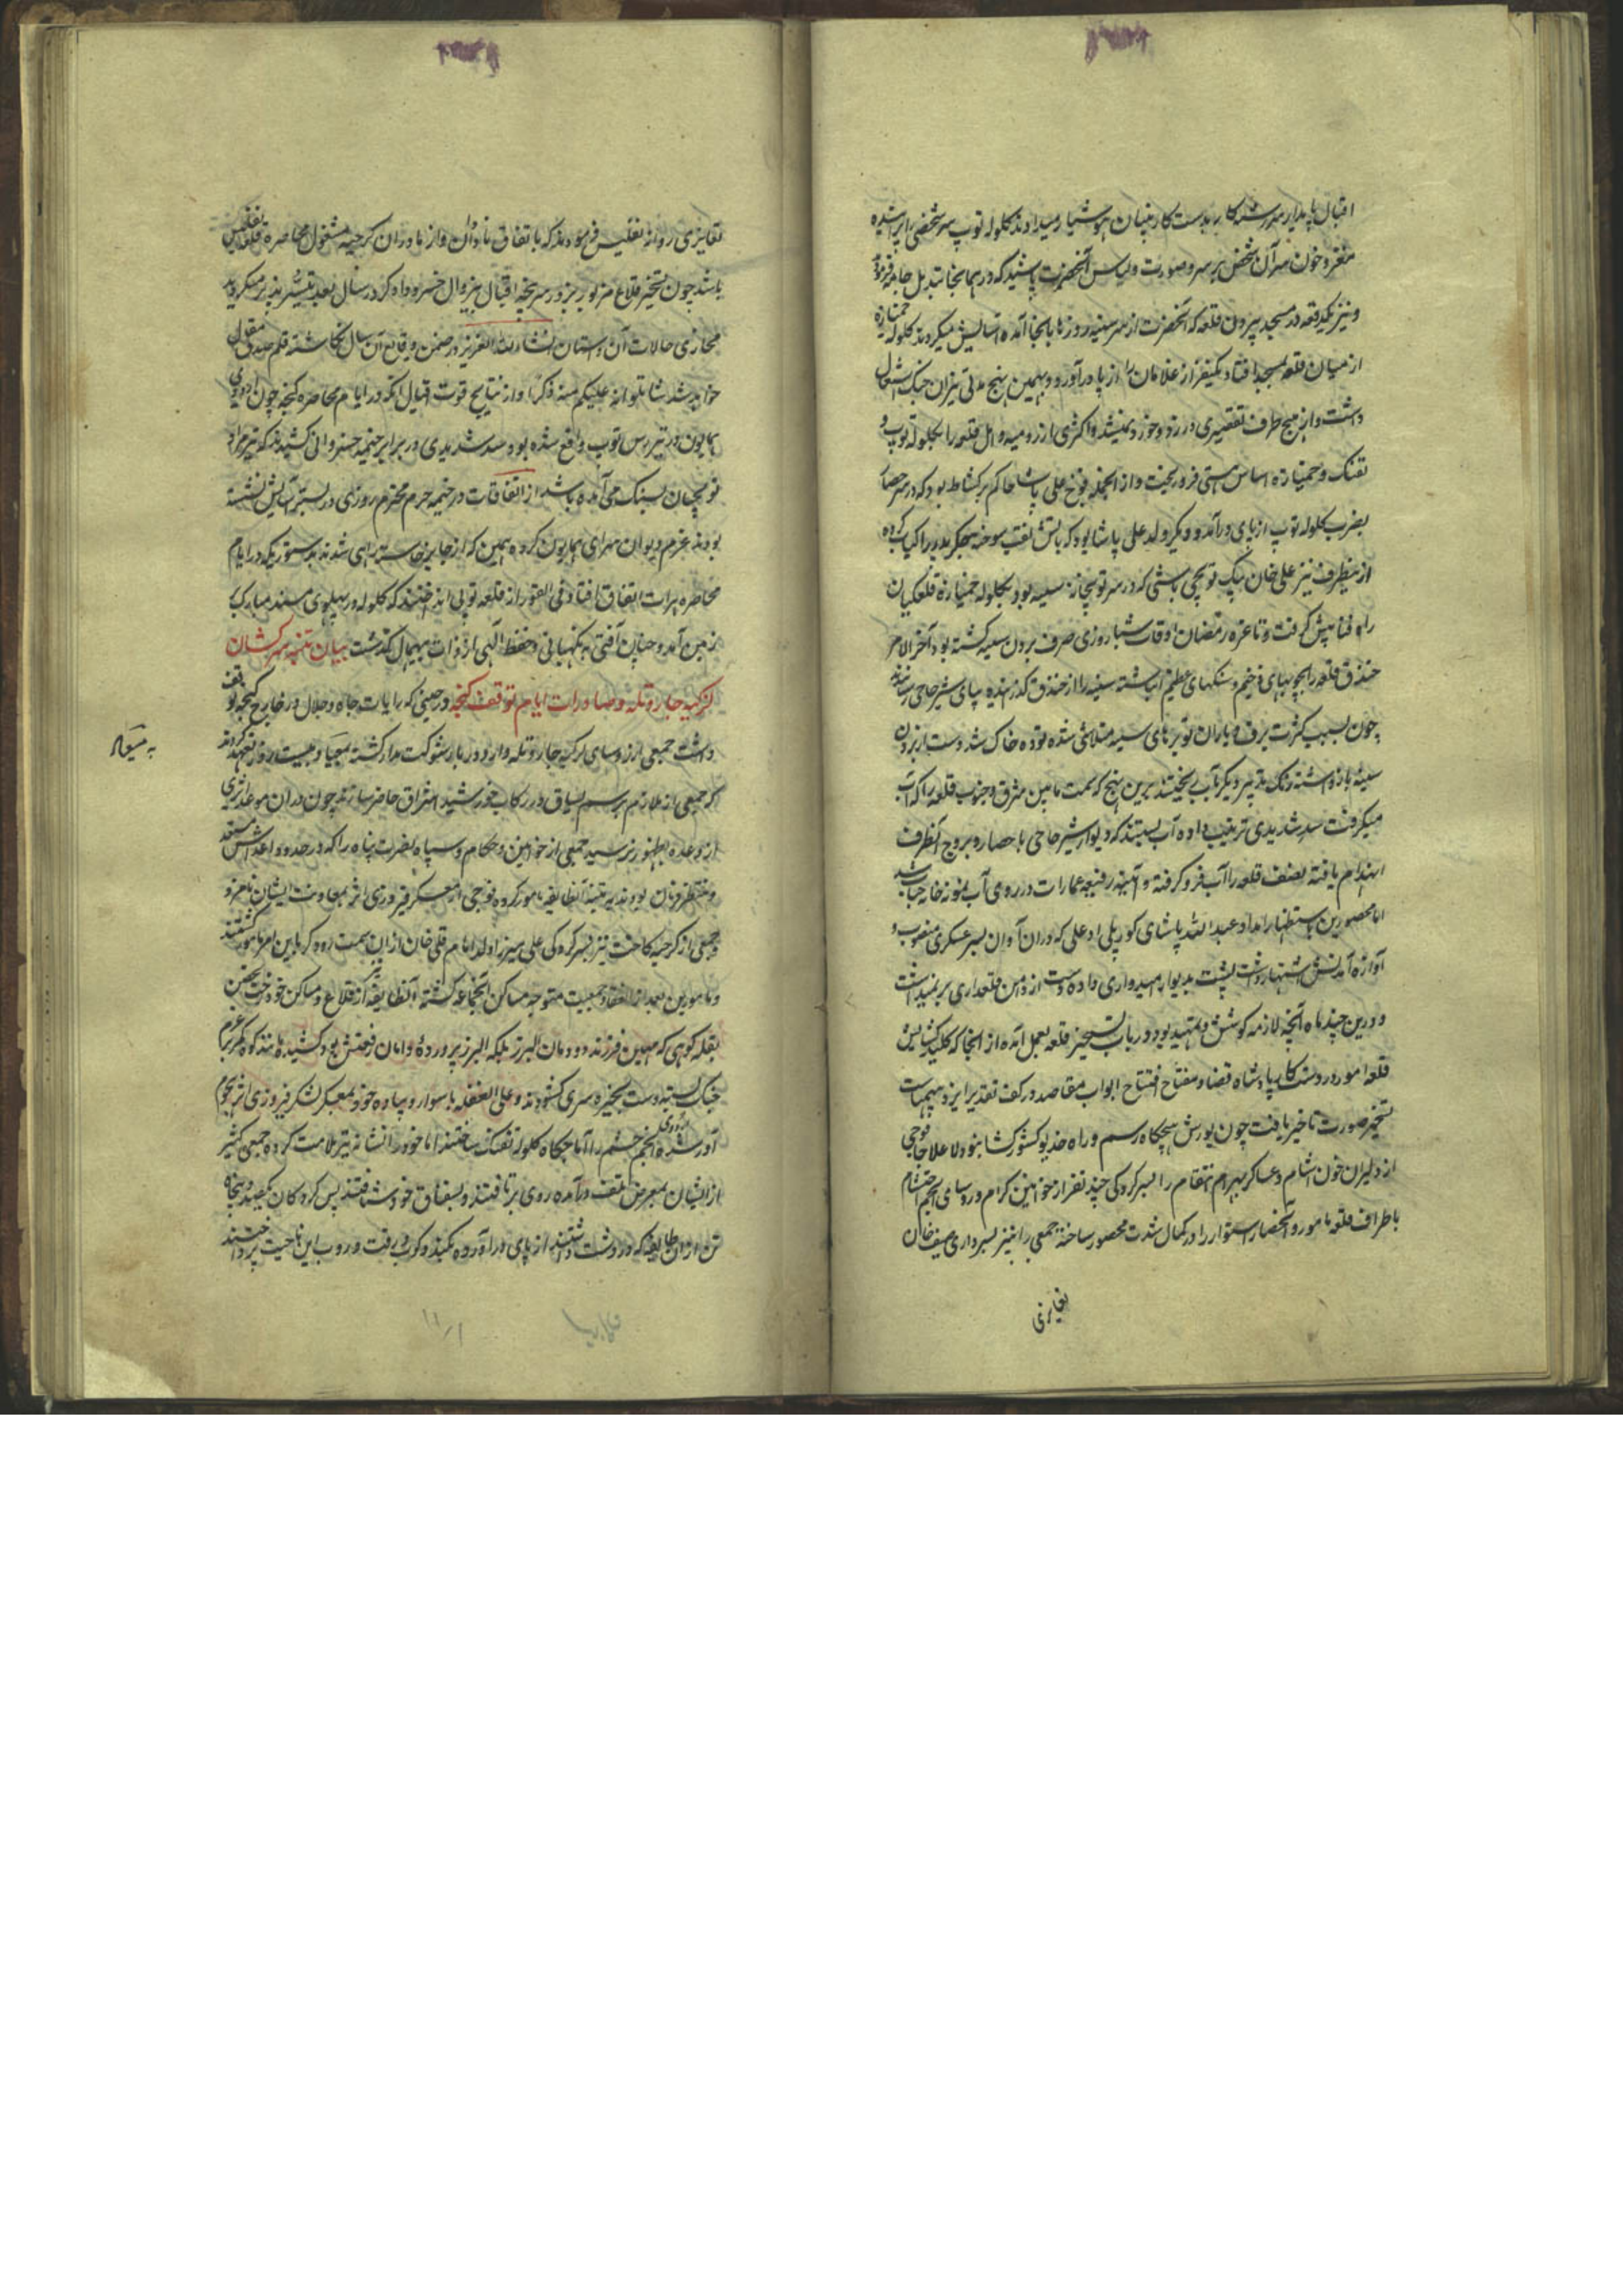 اقبال پایدار مدرسه کار بدست کارپنهان هوشیار میدادند کلوله توپ بر سر شخصی ایرانیده
مغز و خون سر آن شخص بر سر و صورت و لباس آنحضرت پاشید که در همانجا تبدیل جامه فرمودند
و نیز یکدفعه در مسجد بیرون قلعه که آنحضرت از سر سیبه روزها بانجا آمده آسایش میکردند کلوله خمپاره
از میان قلعه بمسجد افتاد یکنفر از غلامان را از پا درآورد و بهمین نهج مدتی نیران جنک اشتعال
داشت و از هیچ طرف تقصیری در زد و خورد نمیشد و اکثری را از رومیه و اهل قلعه را بکلوله توپ و
تفنک و خمپاره اساس هستی فرو ریخت و از انجمله فوخ علی پاشا حاکم بود که در سر حصار
بضرب کلوله توپ از پای درآمد و دیکر ولد علی پاشا بود که باتش نقب سوخته جکر پدر را کباب کرده
از ینطرف نیز علی خان بیک توپچی باشی که در سر توپخانه سیبه بود بکلوله خمپاره قلعکیان
راه فنا پیش کرفت و تا غره رمضان اوقات شباروزی صرف بردن سیبه کشته بود آخر الامر
خندق قلعه را بچوبهای ضخیم و سنکهای عظیم انباشته سیبه را از خندق کذرانیده بپای شیرحاجی رسانیدند
چون بسبب کثرت برف و باران توبرهای سیبه متلاشی شده توده خاک شد دست از بردن
سیبه بازداشته رنک تدبیر دیکر بآب ریختند برین نهج که سمت مابین مشرق و جنوب قلعه را که آب
میکرفت سد شدیدی ترتیب داده آب بستند که دیوار شیرحاجی با حصار و بروج آنطرف
انهدام یافته نصف قلعه را آب فرو کرفته و ابنیه رفیعه عمارات در روی آب نمونه خانه حباب شد
اما محصورین باستظهار امداد عبدالله پاشای کورپلی اوغلی که در آن آوان بسر عسکری منصوب و
آوازه آمدنش اشتهار داشت پشت بدیوار امیدواری داده دست از دامن قلعداری بر نمیداشت
و درین چند ماه آنچه لازمه کوشش و تمهید بود در باب تسخیر قلعه بعمل آمد از انجا که کلید کشایش
قلعه امور در دست کارپادشاه قضا و مفتاح افتتاح ابواب مقاصد در کف تقدیر ایزد بیهمتاست
تسخیر صورت تاخیر یافت چون یورش هیچکاه رسم و راه خدیو کشورکشا نبود و لا علاج فوجی
از دلیران خون آشام و عساکر بهرام انتقام را بسرکردکی چند نفر از خوانین کرام و روسای انجم احتشام
باطراف قلعه مامور و آنحصار استوار را در کمال شدت محصور ساخته جمعی را نیز بسرداری صفی خان
بغایری
بغایری روانه تفلیس فرمودند که باتفاق تاوادان و ازناوران کرجیه مشغول محاصره قلعه تفلیس
باشد چون تسخیر قلاع مزبور بزور سرپنجه اقبال بیزوال خسرو دادکر در سال بعد تیسر پذیر میکردید
مجاری حالات آن داستان انشاء الله العزیز در ضمن وقایع آن سال نکاشته قلم صدق مقال
خواهد شد ساتلوا علیکم منه ذکرا و از نتایج قوت اقبال آنکه در ایام محاصره کنجه چون اردوی
همایون در تیررس توپ واقع شده بود سد شدیدی در برابر خیمه خسروانی کشیدند که تیر مراد
توپچیان بسنک می آمده باشد از اتفاقات در خیمه حرم محترم روزی در بستر آسایش نشسته
بودند بعزم دیوان سرای همایون کرده همین که از جا برخاسته راهی شدند بدستوریکه در ایام
محاصره هرات اتفاق افتاد فی الفور از قلعه توپی انداختند که کلوله در پهلوی مسند مبارک
بزمین آمد و چنان آفتی به نکهبانی و حفظ الهی از ذات بیهمال کذشت بیان تنبیه سرکشان
لزکیه جار و تله و صادرات ایام توقف کنجه در حینی که رایات جاه و جلال در خارج کنجه توقف
داشت جمعی از روسای لزکیه جار و تله وارد دربار شوکت مدار کشته بمیعاد بیست روز تعهد کردند
که جمعی از ملازم برسم یساق در رکاب خورشید اشراق حاضر سازند چون در آن موعد اثری
از وعده بظهور نرسید جمعی از خوانین و حکام و سپاه نصرت پناه را که در حدود اغداش مستعد
و منتظر فرمان بودند به تنبیه آنطایفه مامور کرده فوجی از معسکر فیروزی اثر بمعاونت ایشان نامزد
و جمعی از کرجیه کاخت نیز بسرکردکی علی میرزا ولد امام قلی خان از ان سمت رود کر باین امر مامور کشتند
و مامورین بعد از انعقاد جمعیت متوجه مساکن آنجماعه کشته آنطایفه از قلاع و مساکن خود رخت تحصن
بقله کوهی که مهین فرزند دودمان البرز بلکه البرز پرورده دامان رفعتش بود کشیده مانند کوه کمر بعزم
جنک بسته دست بخیره سری کشودند و علی الغفله با سوار و پیاده خود بمعسکر لشکر فیروزی اثر هجوم
آور شده اردوی انجم حشم را آماجکاه کلوله تفنک ساختند اما خود را نشانه تیر ملامت کرده جمعی کثیر
از ایشان بمعرض تلف درآمده روی برتافتند و بسقناق خود شتافتند پس کردکان یکصد و پنجاه
تن از ان طایفه که در دست داشتند از پای درآورده بکند و کوب و رفت و روب این ناحیت پرداختند
به میعاد